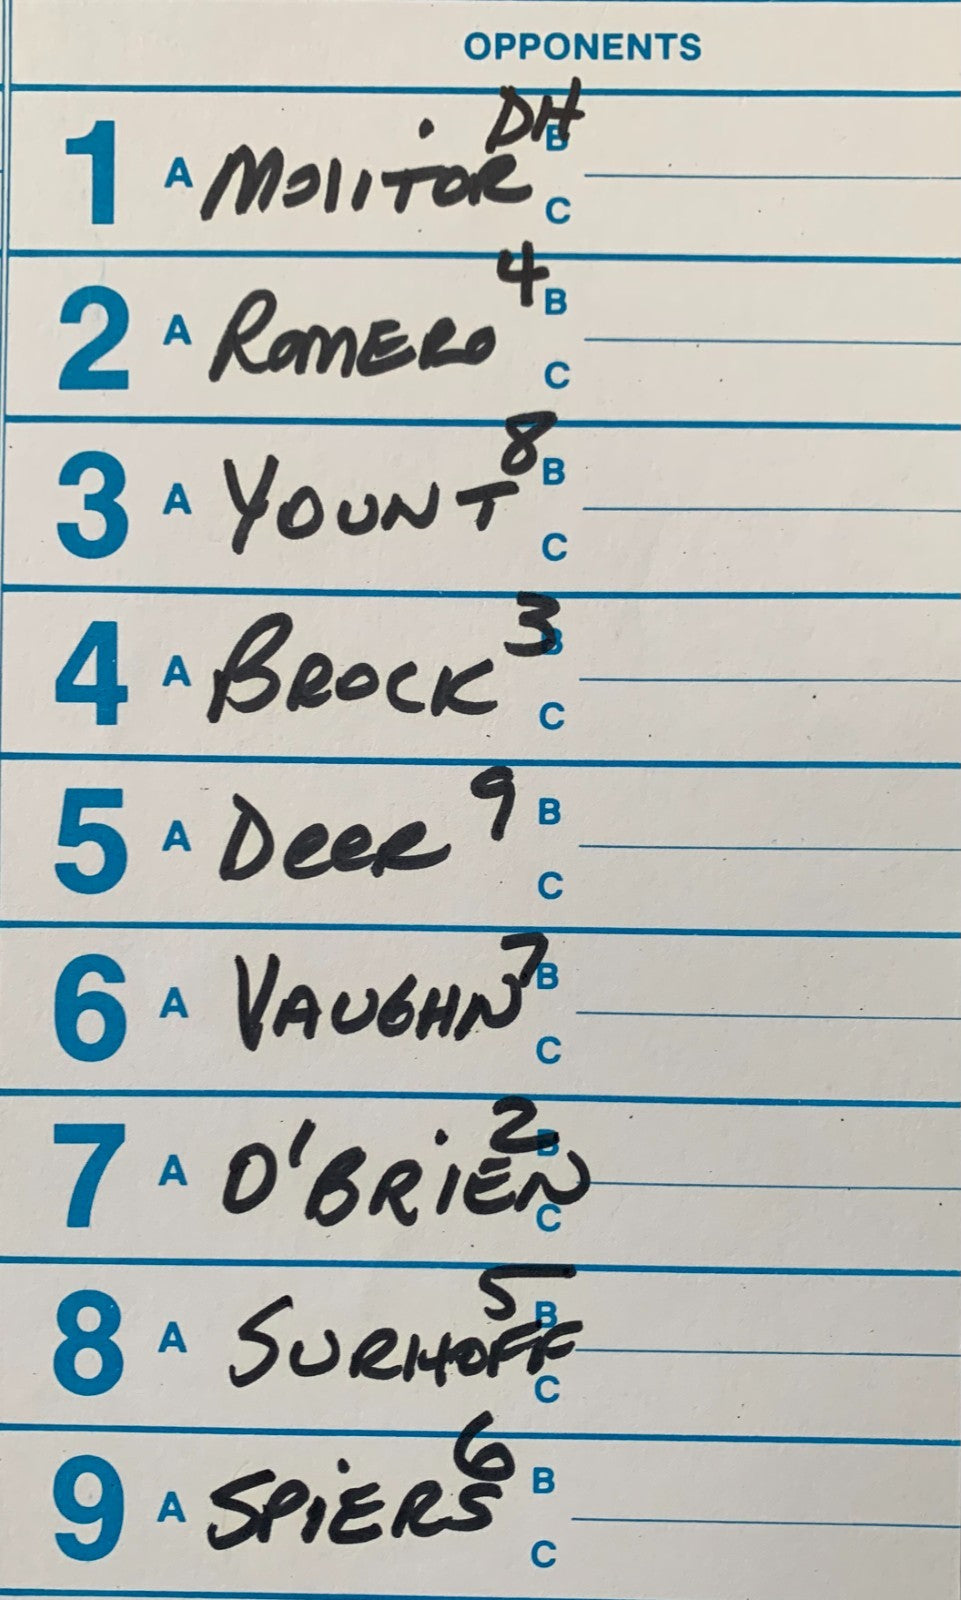 OPPONENTS
1 A MOLITOR DH B
C
2 A ROMERO 4 B
C
3 A YOUNT 8 B
C
4 A BROCK 3 B
C
5 A Deer 9 B
C
6 A VAUGHN 7 B
C
7 A O'BRIEN 2 B
C
8 A SURHOFF 5 B
C
9 A SPiERS 6 B
C